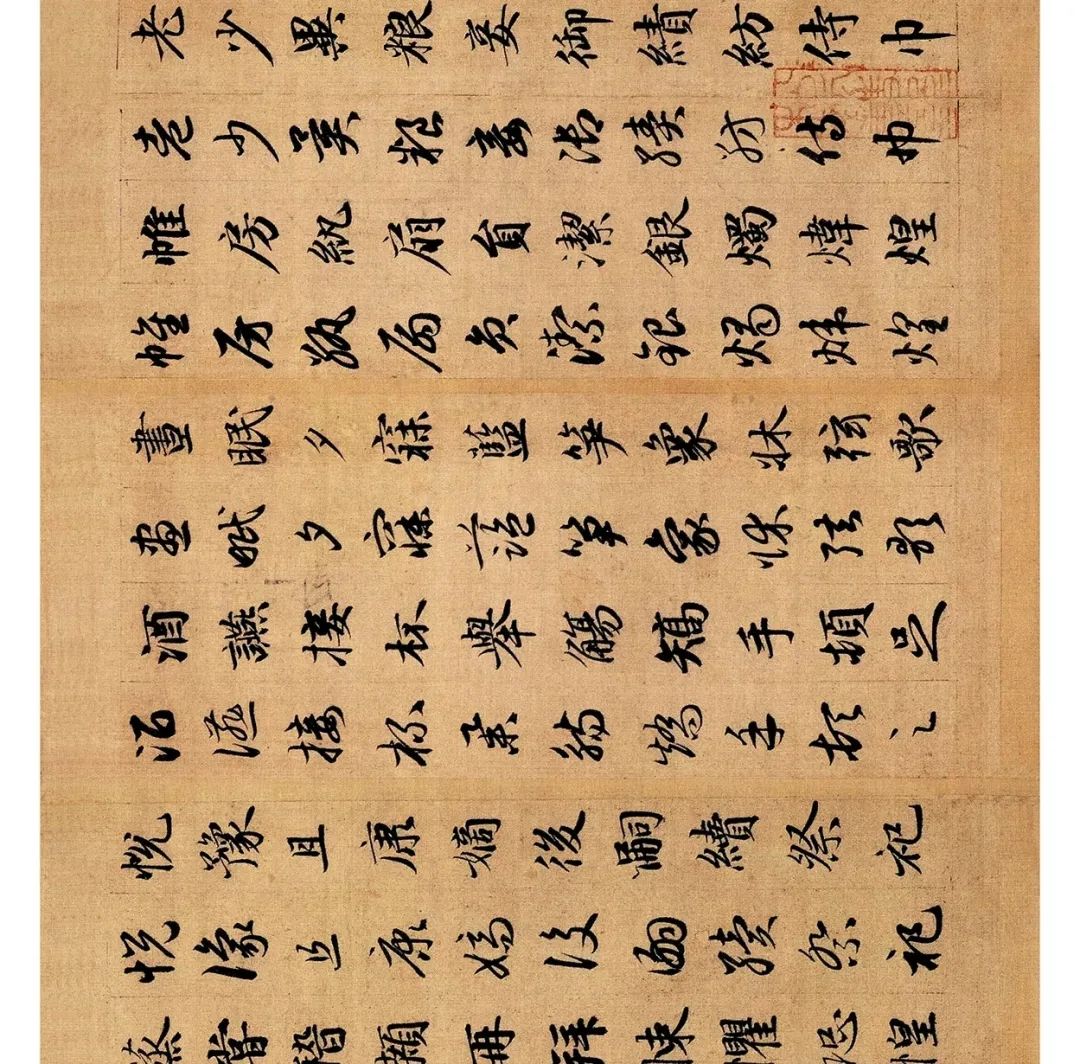 老少異粮妾御績紡侍巾
老少異粮妾御績紡侍巾
帷房紈扇員潔銀燭煒煌
帷房紈扇員潔銀燭煒煌
晝眠夕寐藍笋象牀弦歌
晝眠夕寐藍笋象牀弦歌
酒讌接杯舉觴矯手頓足
酒讌接杯舉觴矯手頓足
悅豫且康嫡後嗣續祭祀
悅豫且康嫡後嗣續祭祀
蒸嘗稽顙再拜悚懼恐惶